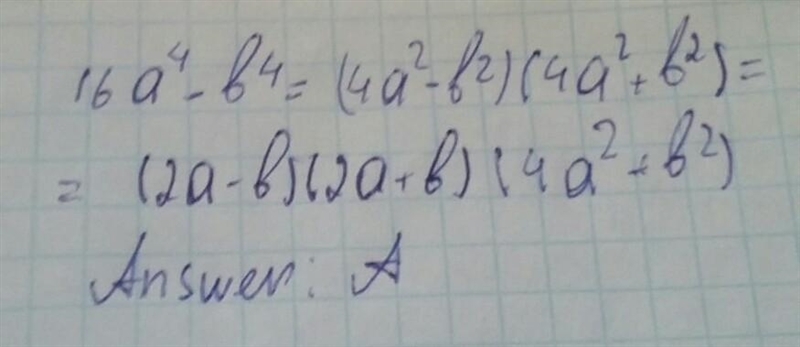 16a⁴ - b⁴ = (4a² - b²)(4a² + b²) =
= (2a - b)(2a + b)(4a² + b²)
Answer: A